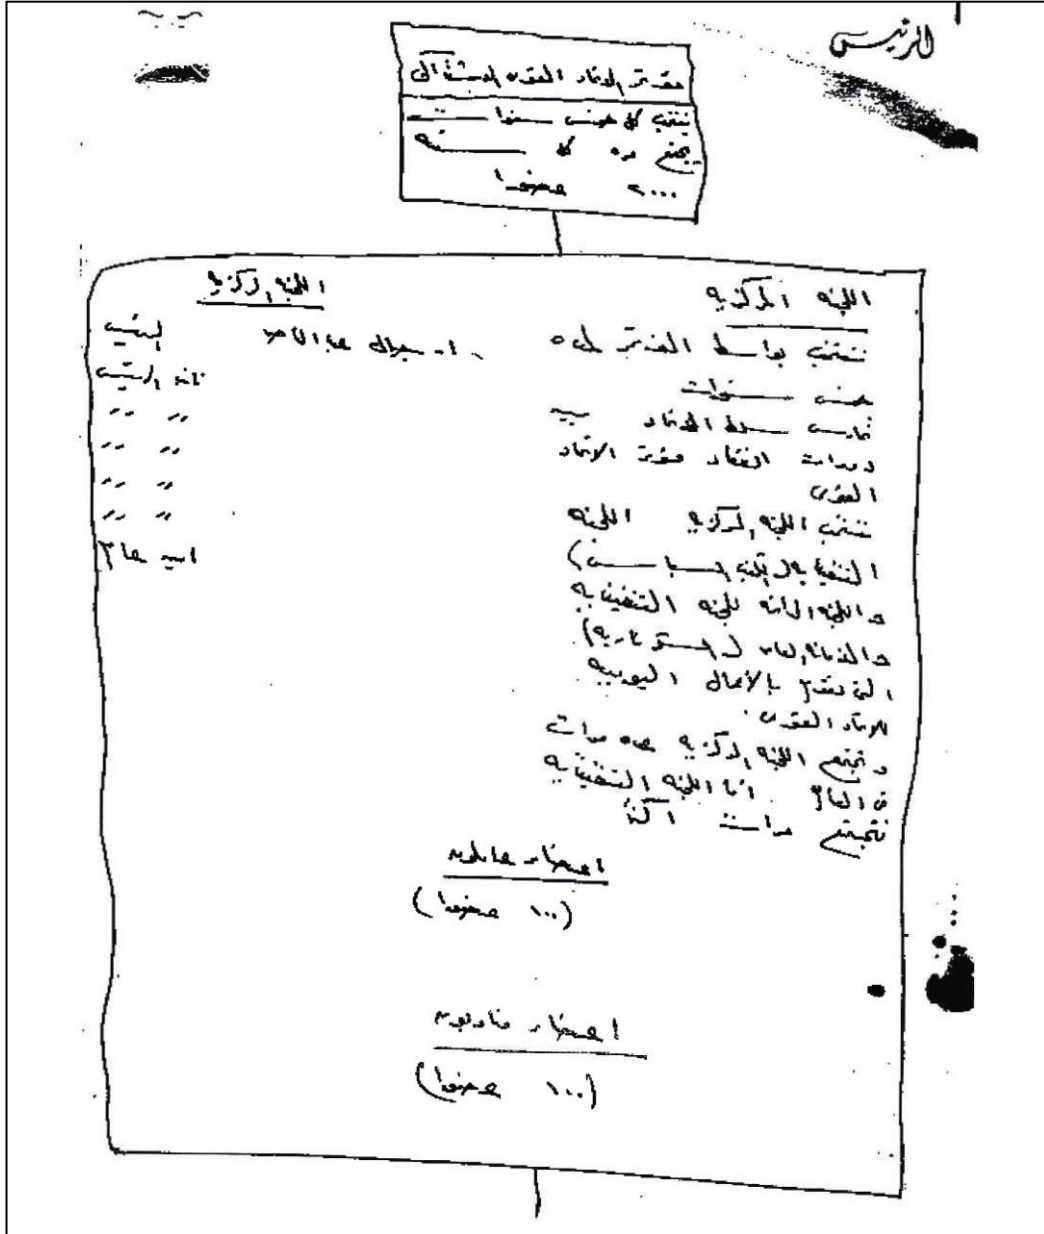 الرئيس
مؤتمر الاتحاد القومى الاشتراكى
ينتخب كل خمس سنوات
يجتمع مره كل سنه
٢٠٠٠ عضوا
اللجنه المركزيه
تنتخب بواسطة المؤتمر لمده
خمس سنوات
تمارس سلطة الاتحاد بين
دورات انعقاد مؤتمر الاتحاد
القومى
تنتخب اللجنه المركزيه اللجنه
التنفيذيه (المكتب السياسى)
واللجنه الدائمه للجنه التنفيذيه
والامانه العامه (السكرتاريه)
التى تقوم بالأعمال اليوميه
للاتحاد القومى
وتجتمع اللجنه المركزيه عده مرات
فى العام . اما اللجنه التنفيذيه
فتجتمع مرات اكثر
اللجنه المركزيه
١- جمال عبد الناصر الرئيس
نائب الرئيس
〃 〃
〃 〃
〃 〃
〃 〃
امين عام
اعضاء عاملون
(١٠٠ عضوا)
اعضاء مناوبون
(١٠٠ عضوا)